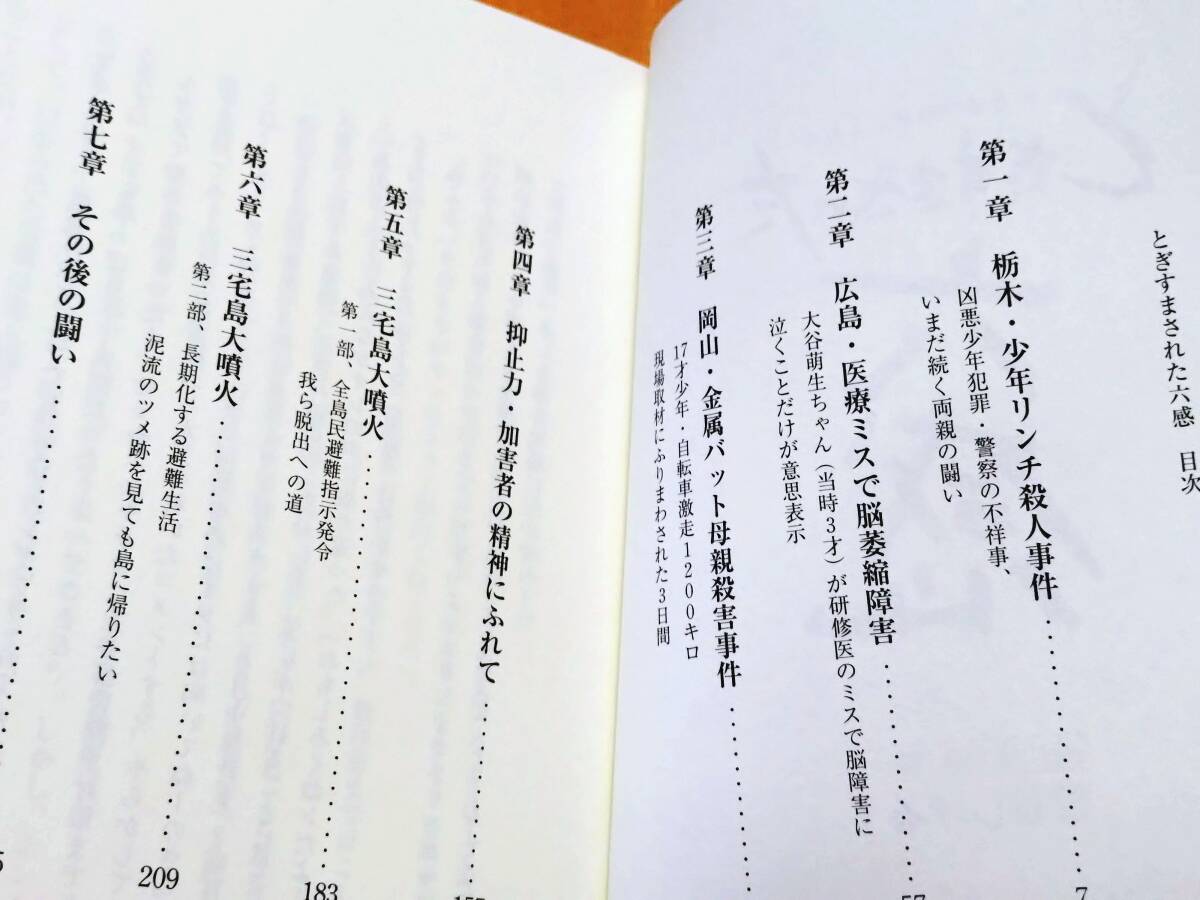 とぎすまされた六感　目次
第一章　栃木・少年リンチ殺人事件……………7
凶悪少年犯罪・警察の不祥事、
いまだ続く両親の闘い
第二章　広島・医療ミスで脳萎縮障害……………57
大谷萌生ちゃん（当時3才）が研修医のミスで脳障害に
泣くことだけが意思表示
第三章　岡山・金属バット母親殺害事件……………
17才少年・自転車激走1200キロ
現場取材にふりまわされた3日間
第四章　抑止力・加害者の精神にふれて……………
第五章　三宅島大噴火……………183
第一部、全島民避難指示発令
我ら脱出への道
第六章　三宅島大噴火……………209
第二部、長期化する避難生活
泥流のツメ跡を見ても島に帰りたい
第七章　その後の闘い……………